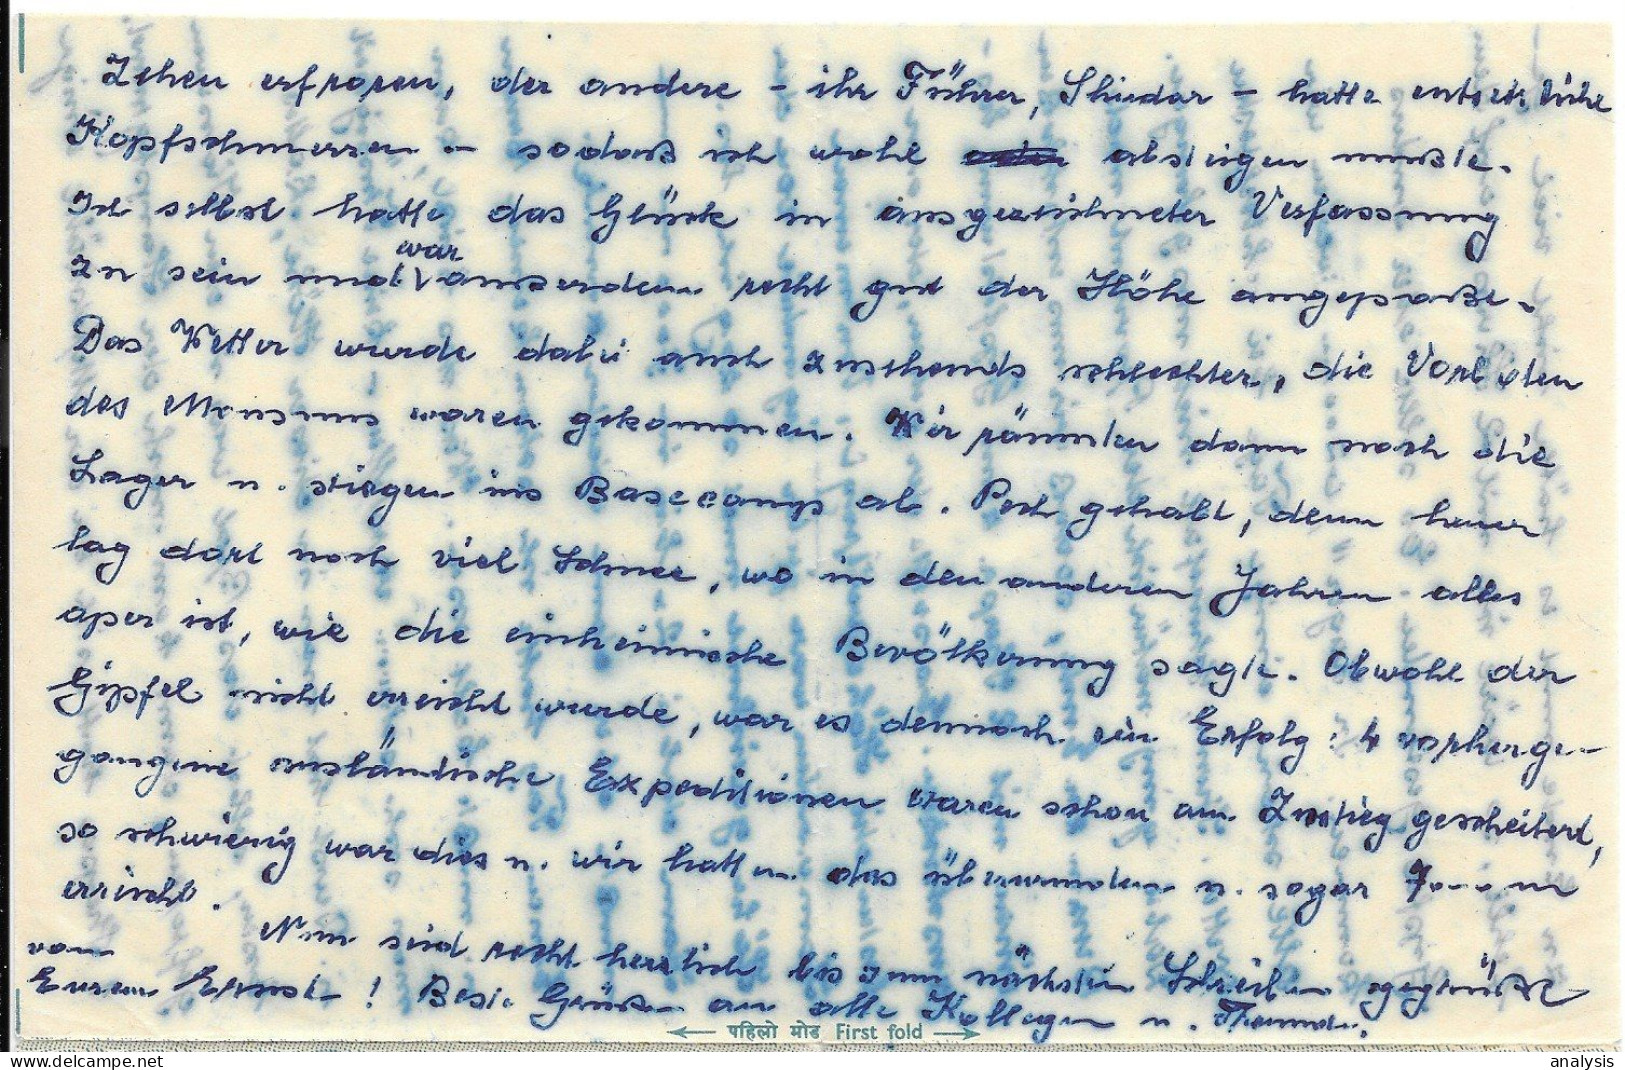 Zehen erfroren, der andere - ihr Führer, Shudar - hatte entsetzliche
Kopfschmerzen - sodaß ich wohl absteigen mußte.
Ich selbst hatte das Glück in ausgezeichneter Verfassung
zu sein und war ausserdem recht gut der Höhe angepaßt.
Das Wetter wurde dabei auch zusehends schlechter, die Vorboten
des Monsuns waren gekommen. Wir räumten dann noch die
Lager u. stiegen ins Basecamp ab. Pech gehabt, denn heuer
lag dort noch viel Schnee, wo in den anderen Jahren alles
aper ist, wie die einheimische Bevölkerung sagte. Obwohl der
Gipfel nicht erreicht wurde, war es dennoch ein Erfolg: 4 vorherge-
gangene ausländische Expeditionen waren schon am Zustieg gescheitert,
so schwierig war dies u. wir hatten das überwunden u. sogar 7000 m
erreicht.
Nun seid recht herzlich bis zum nächsten Schreiben gegrüßt
von
Eurem Ernst! Beste Grüße an alle Kollegen u. Freunde.
पहिलो मोड First fold
ma-shops.de/philea
analysis